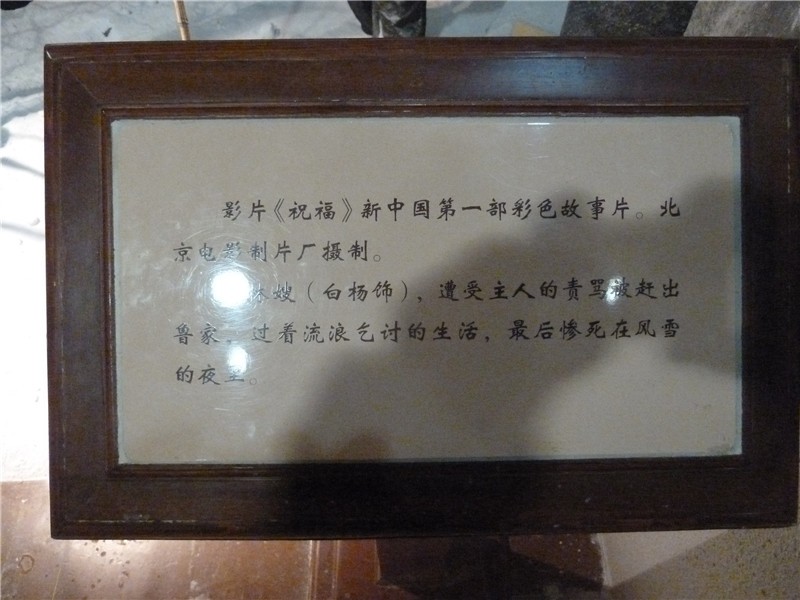 影片《祝福》新中国第一部彩色故事片。北
京电影制片厂摄制。
林嫂（白杨饰），遭受主人的责骂被赶出
鲁家，过着流浪乞讨的生活，最后惨死在风雪
的夜里。